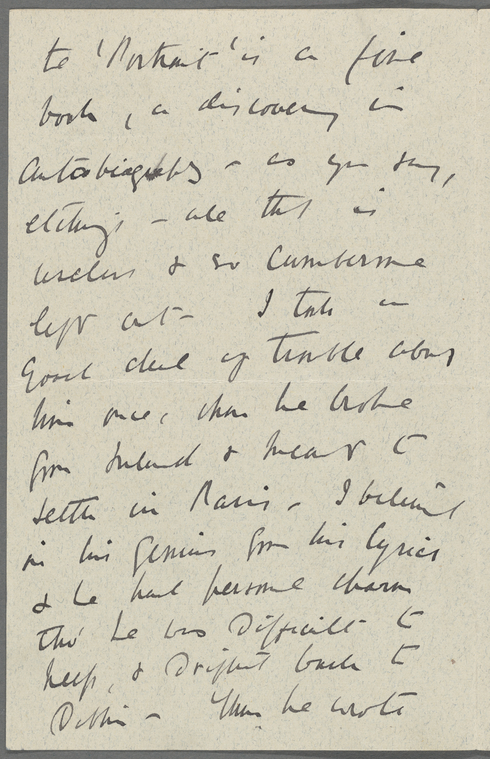 te 'Portrait' is a fine
book, a discovery in
Autobiography - as you say,
etchings - all that is
useless & so cumbersome
left out - I took a
good deal of trouble about
him once, when he broke
from Ireland & meant to
settle in Paris - I believed
in his genius from his lyrics
& he had personal charm
tho' he was difficult to
help, & drifted back to
Dublin - Then he wrote